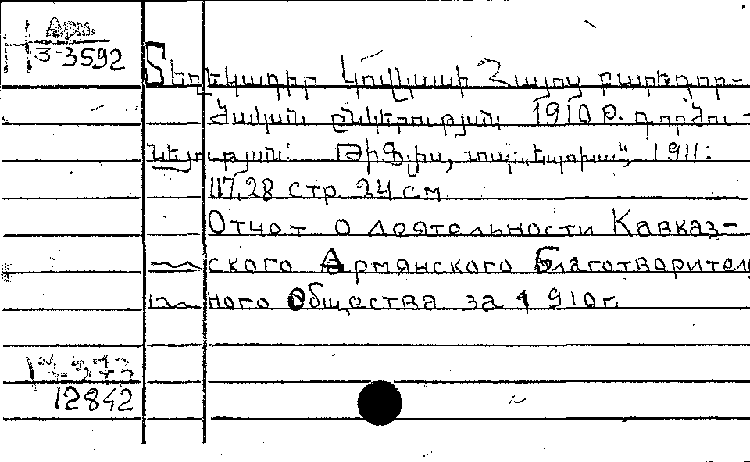 Арм.
3-3592
Տեղեկագիր Կովկասի Հայոց բարեգոր-
ծական ընկերության 1910 թ. գործու-
նեյության: Թիֆլիս, տպ. „Էսպերանտ“, 1911:
117, 28 стр. 24 см
Отчет о деятельности Кавказ-
ского Армянского Благотворитель
ного Общества за 1910г.
12842